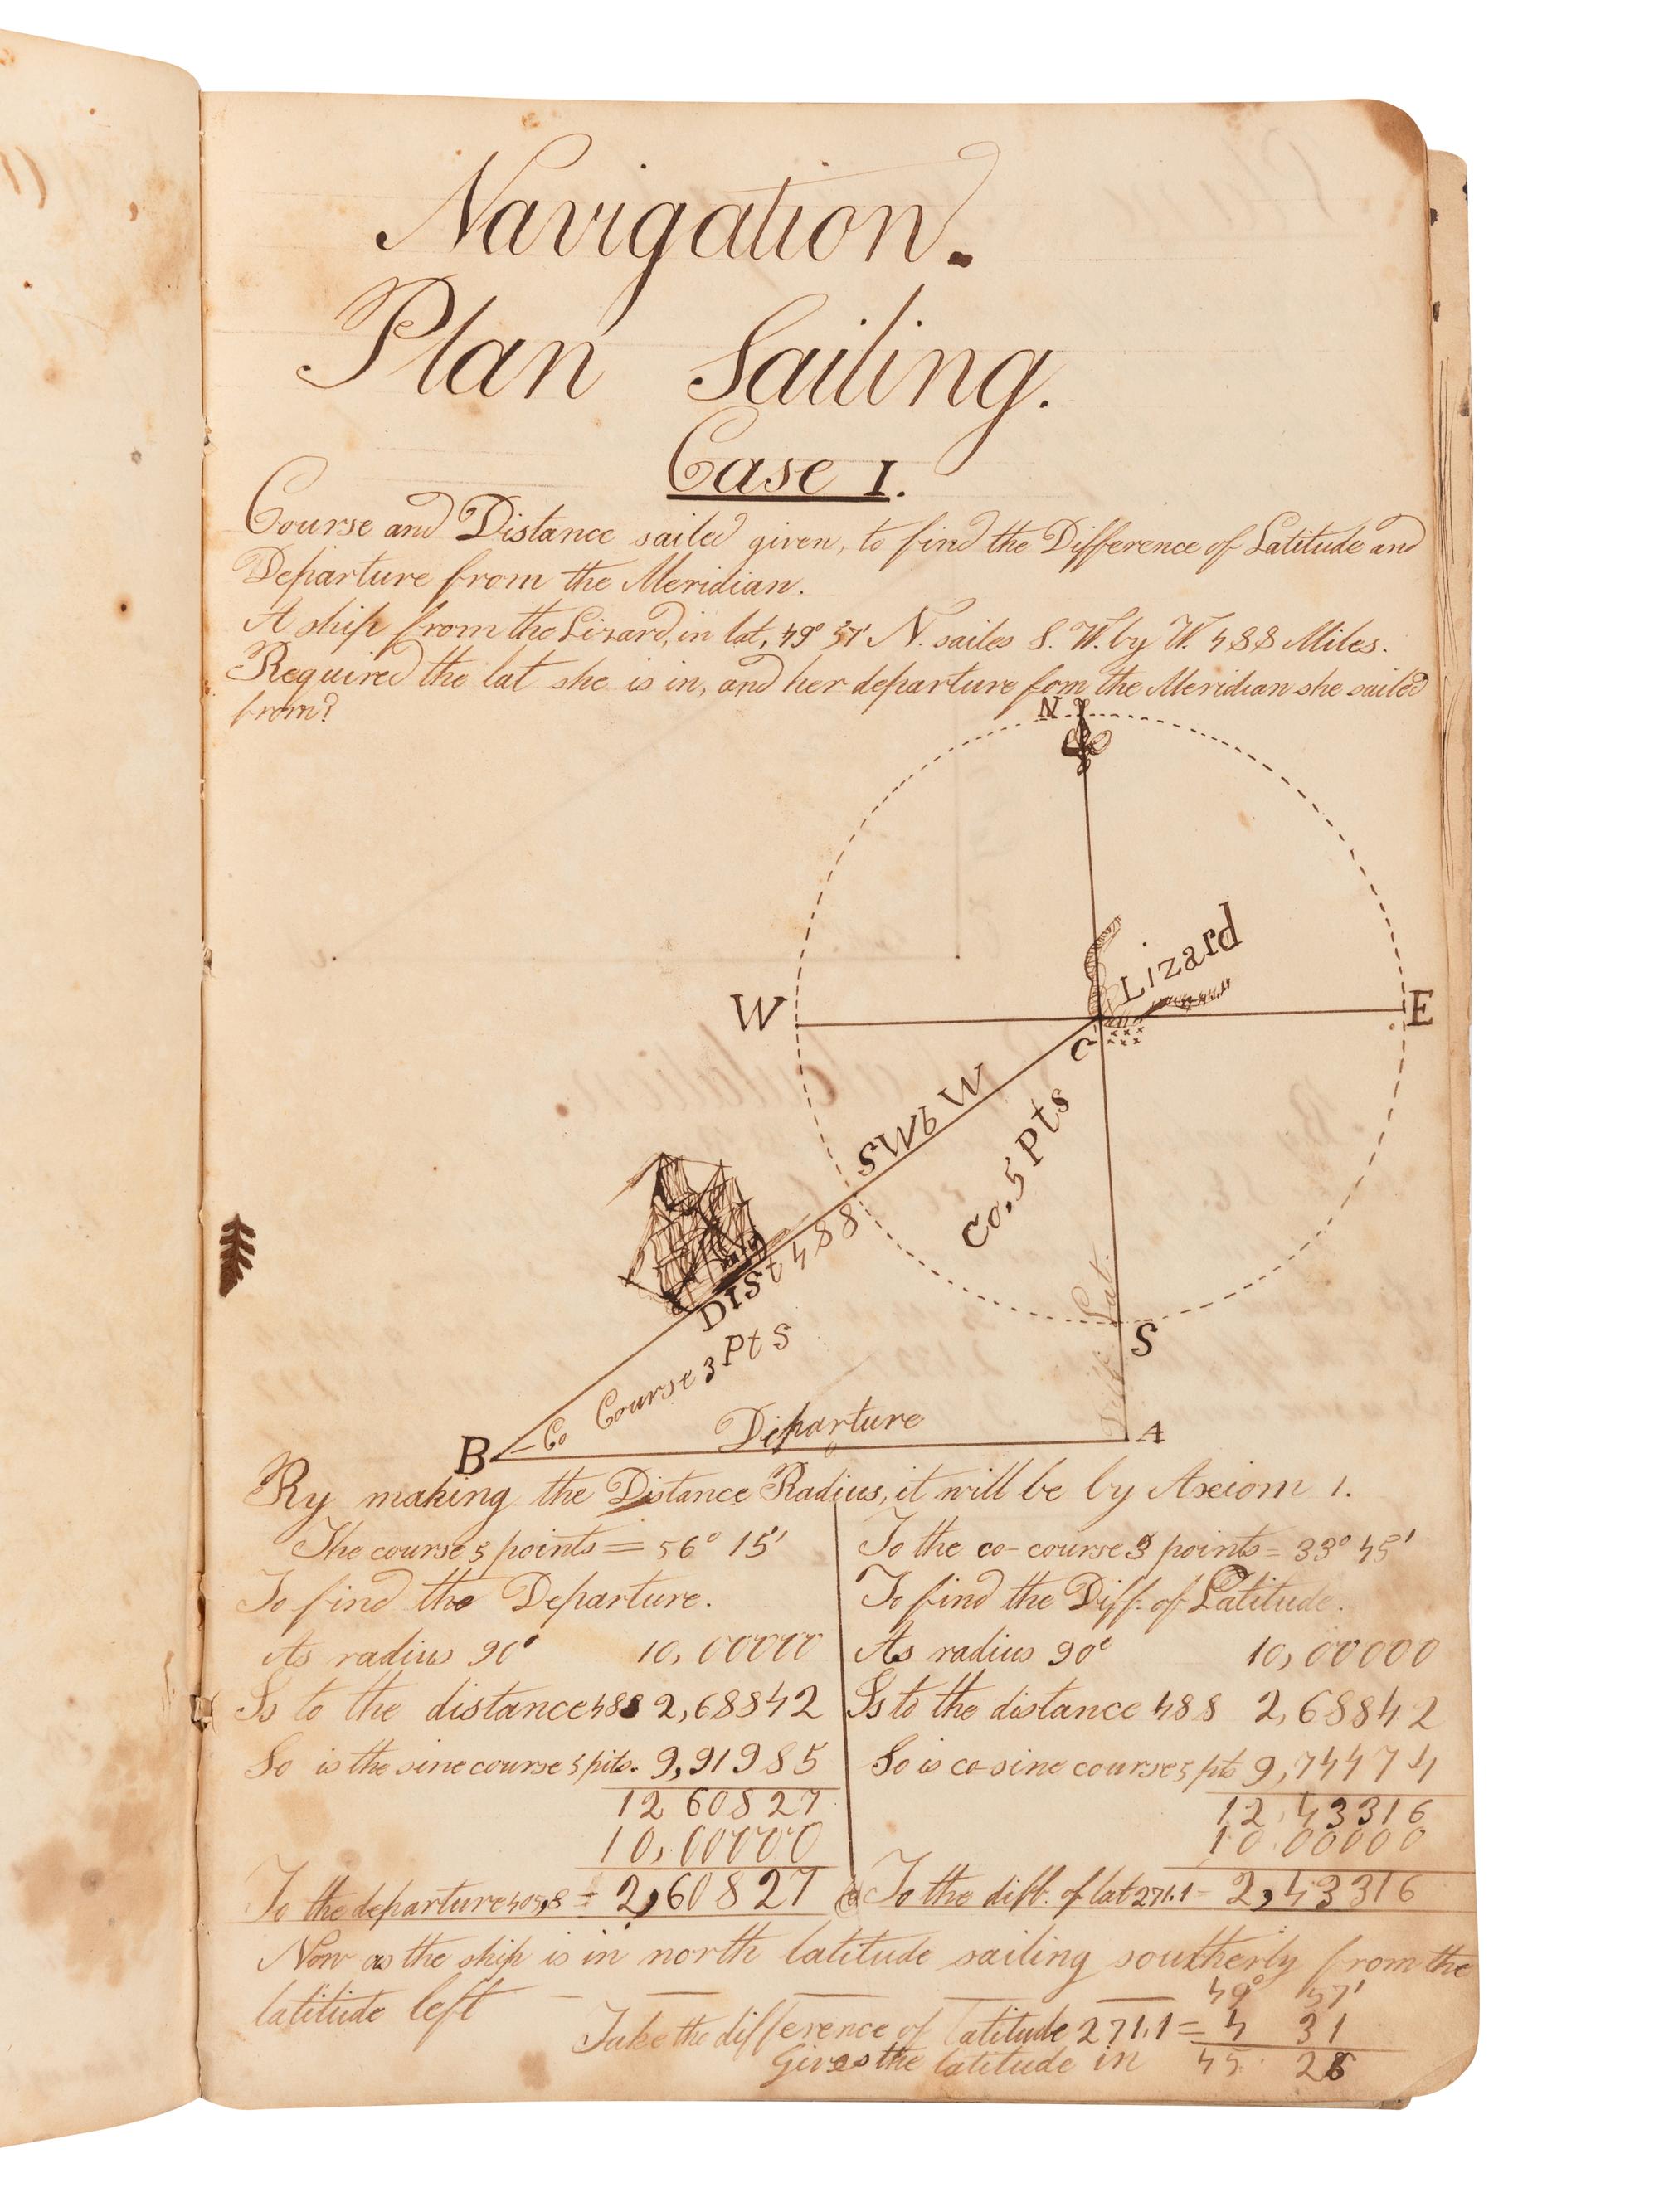 Navigation.
Plan Sailing.
Case 1.
Course and Distance sailed given, to find the Difference of Latitude and
Departure from the Meridian.
A ship from the Lizard, in lat, 49° 57' N. sailes S. W. by W. 488 Miles.
Required the lat she is in, and her departure fom the Meridian she sailed
from?
N
Lizard
W
E
C
SWb W
Co. 5 Pts
Dist 488
Diff. Lat.
S
Course 3 Pts
Co
Departure
B
A
By making the Distance Radius, it will be by Axiom 1.
The course 5 points = 56° 15'
To find the Departure.
As radius 90° 10,00000
Is to the distance 488 2,68842
So is the sine course 5 pits. 9,91985
12 60827
10,00000
To the departure 405,8 = 2,60827
To the co-course 3 points = 33° 45'
To find the Diff. of Latitude.
As radius 90° 10,00000
Is to the distance 488 2,68842
So is co-sine course 5 pts 9,74474
12,43316
10 00000
To the diff. of lat 271.1 = 2,43316
Now as the ship is in north latitude sailing southerly from the
latitude left 49° 57'
Take the difference of latitude 271,1 = 4 31
Gives the latitude in 45 26